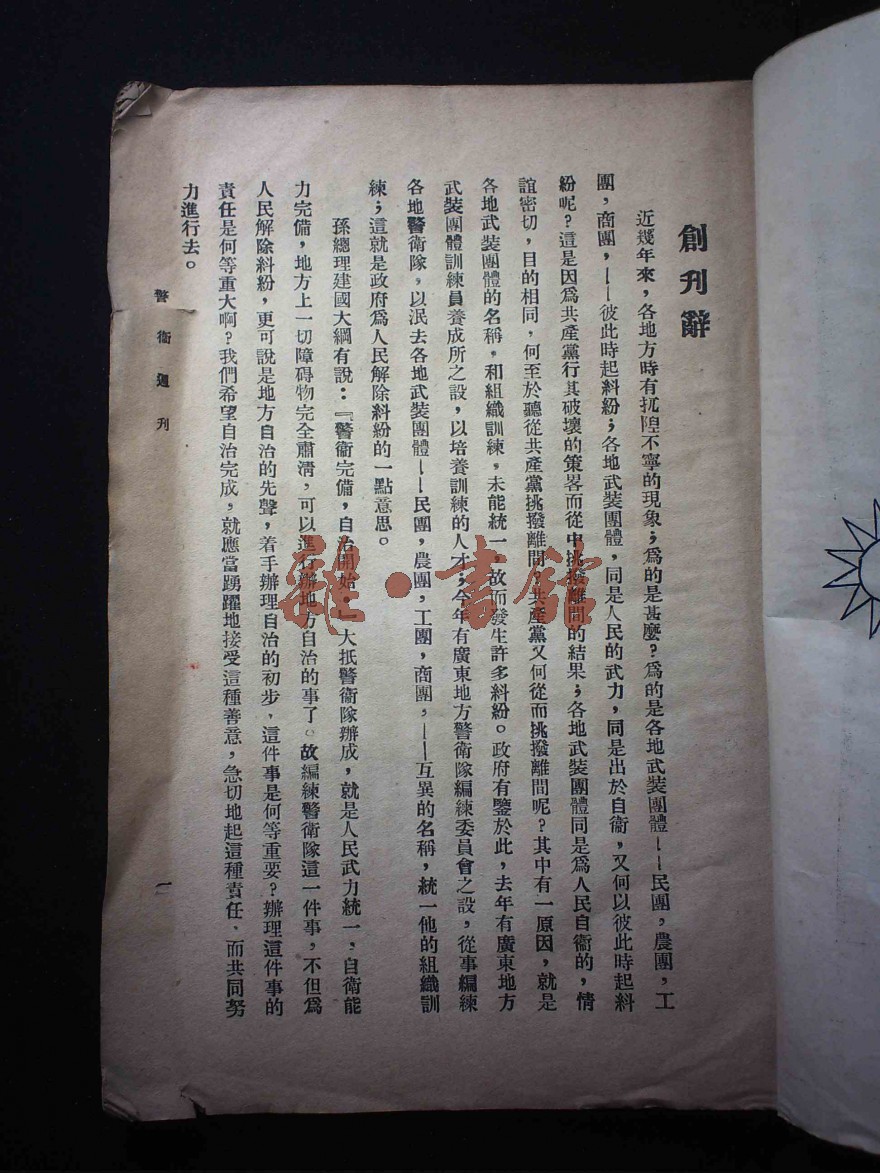 創刊辭
近幾年來，各地方時有扤隉不寧的現象；爲的是甚麽？爲的是各地武裝團體——民團，農團，工
團，商團，——彼此時起糾紛；各地武裝團體，同是人民的武力，同是出於自衞，又何以彼此時起糾
紛呢？這是因爲共產黨行其破壞的策畧而從中挑撥離間的結果；各地武裝團體同是爲人民自衞的，情
誼密切，目的相同，何至於聽從共產黨挑撥離間？共產黨又何從而挑撥離間呢？其中有一原因，就是
各地武裝團體的名稱，和組織訓練，未能統一，故而發生許多糾紛。政府有鑒於此，去年有廣東地方
武裝團體訓練員養成所之設，以培養訓練的人才；今年有廣東地方警衞隊編練委員會之設，從事編練
各地警衞隊，以泯去各地武裝團體——民團，農團，工團，商團，——互異的名稱，統一他的組織訓
練；這就是政府爲人民解除糾紛的一點意思。
孫總理建國大綱有說：『警衞完備，自治開始。』大抵警衞隊辦成，就是人民武力統一，自衞能
力完備，地方上一切障碍物完全肅清，可以進行辦地方自治的事了。故編練警衞隊這一件事，不但爲
人民解除糾紛，更可說是地方自治的先聲，着手辦理自治的初步、這件事是何等重要？辦理這件事的
責任是何等重大啊？我們希望自治完成，就應當踴躍地接受這種善意，急切地起這種責任、而共同努
力進行去。
警衞週刊
一
雜·書館